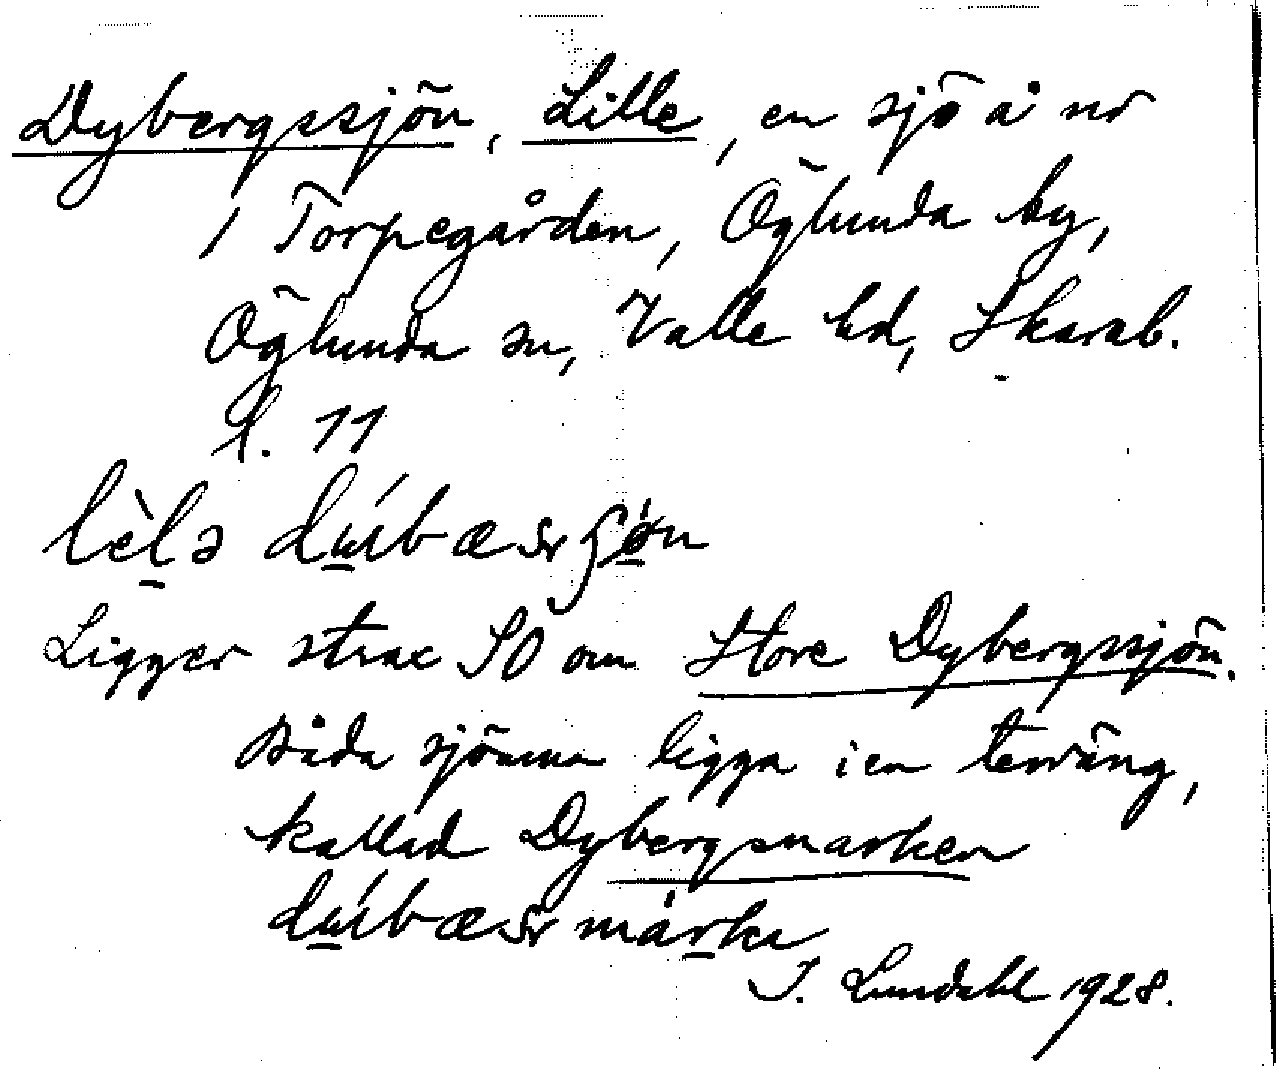 Dybergssjön, Lille, en sjö å nr
1 Torpegården, Öglunda by,
Öglunda sn, Valle hd, Skarab.
l. 11
Ligger strax SÖ om Store Dybergssjön.
Båda sjöarna ligga i en terräng,
kallad Dybergsmarken
J. Lundahl 1928.